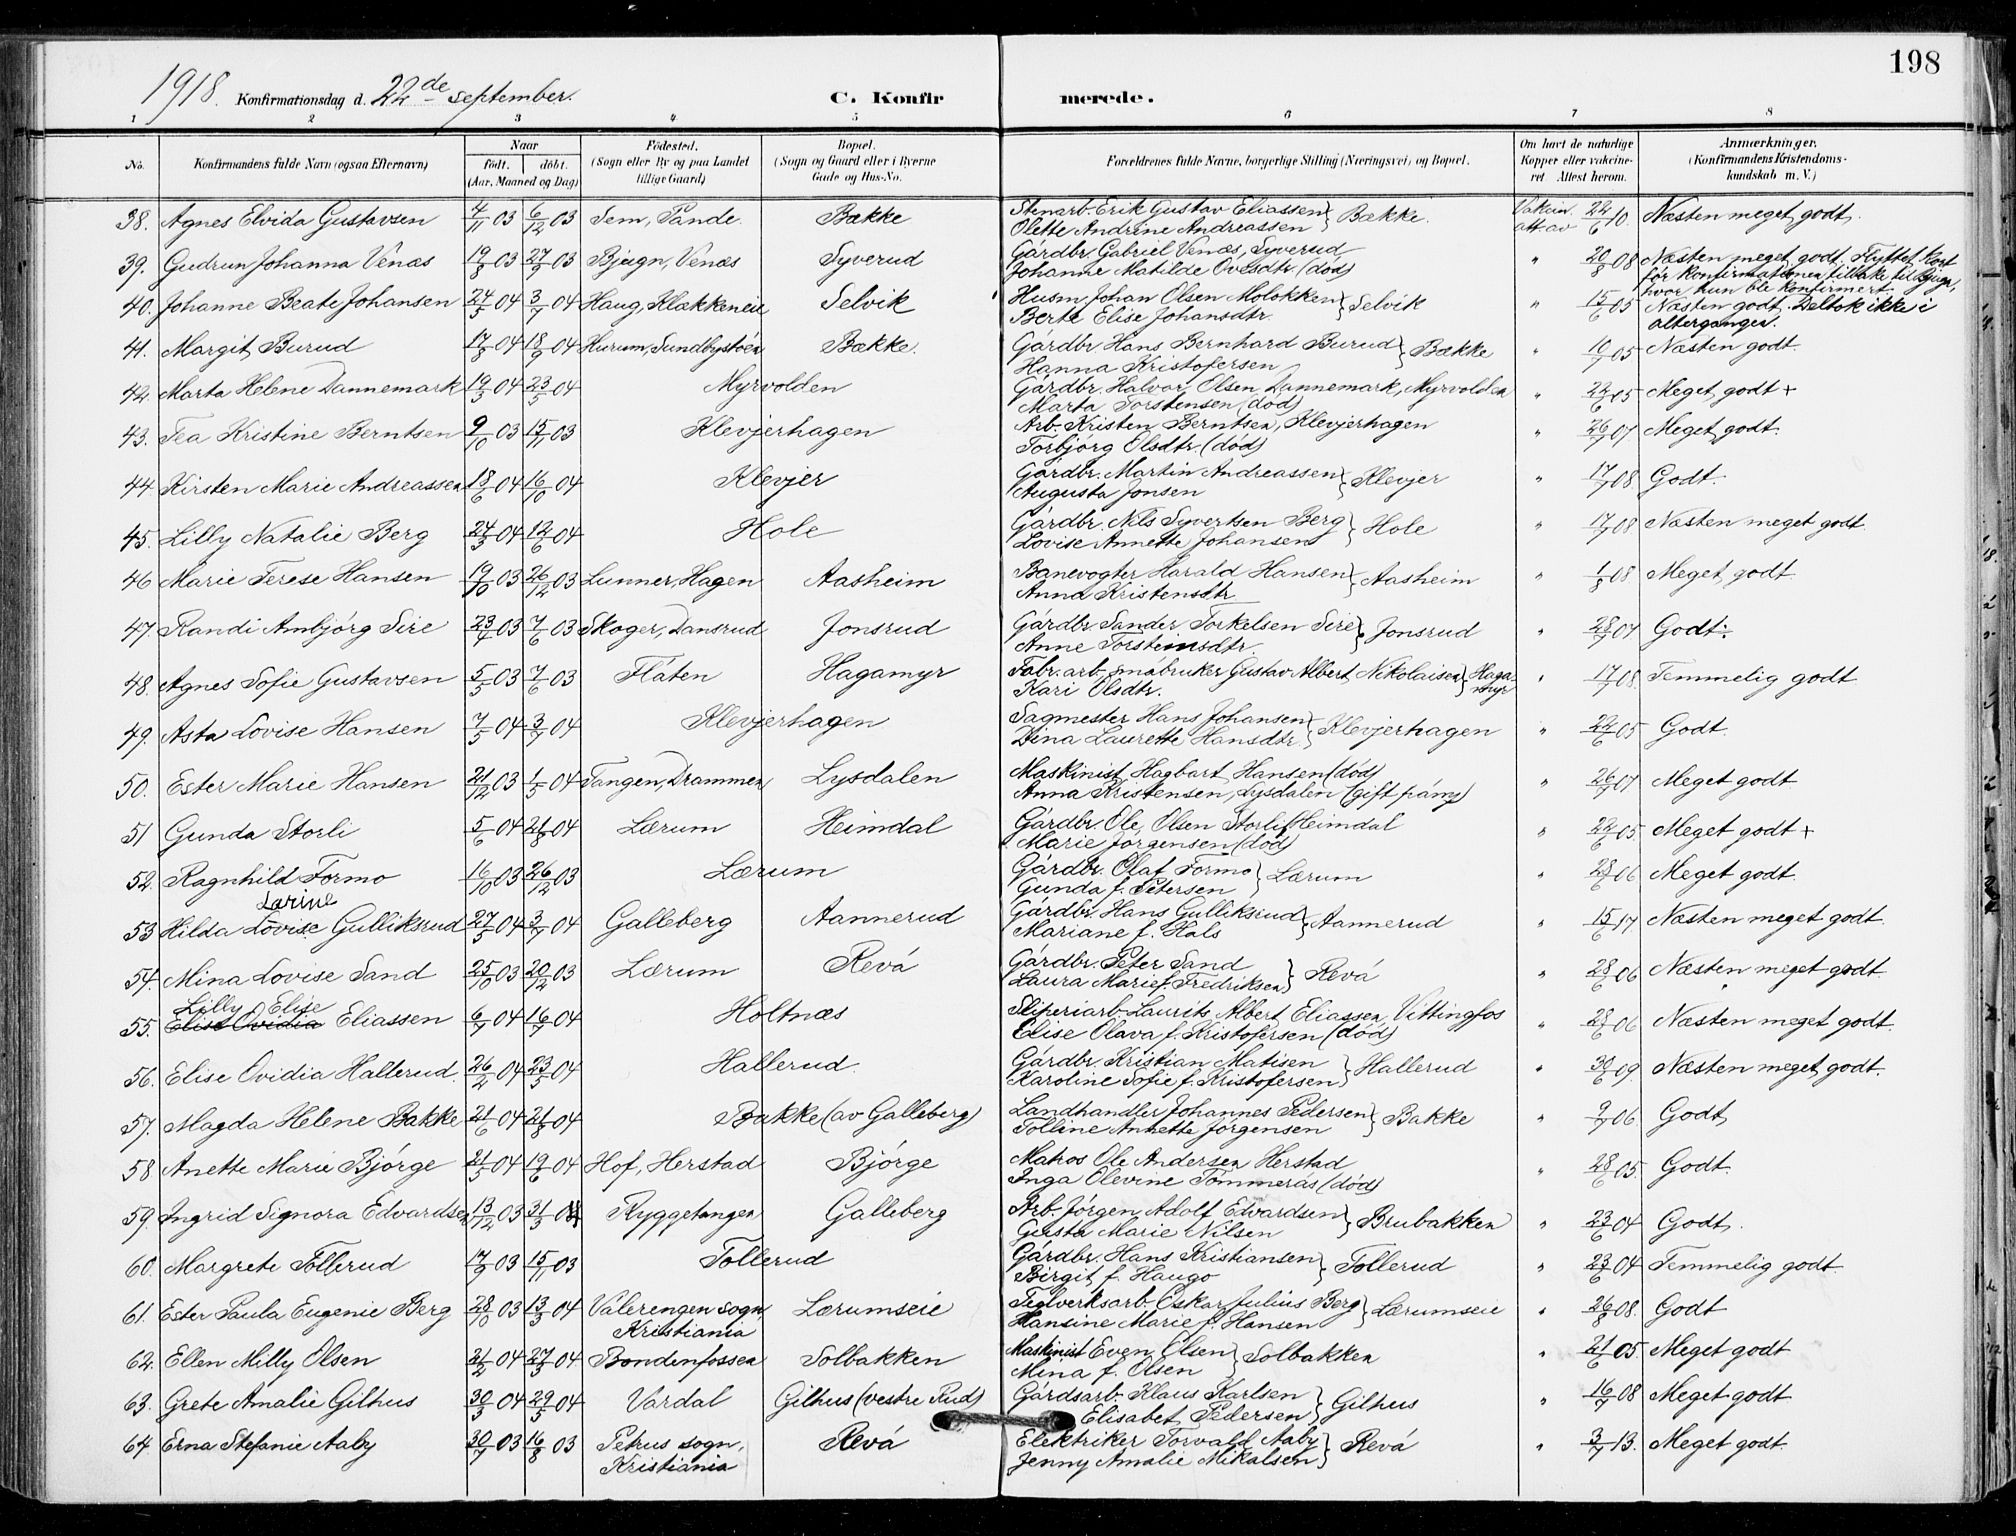 198
1918. Konfirmationsdag d. 22de september. C. Konfirmerede.
1 2 3 4 5 6 7 8
No. Konfirmandens fulde Navn (ogsaa Efternavn) Naar født. døbt. (Aar, Maaned og Dag) Fødested. (Sogn eller By og paa Landet tillige Gaard) Bopæl. (Sogn og Gaard eller i Byerne Gade og Hus-No. Forældrenes fulde Navne, borgerlige Stilling (Næringsvei) og Bopæl. Om havt de naturlige Kopper eller vakcineret. Attest herom. Anmærkninger. (Konfirmandens Kristendomskundskab m. V.)
38. Agnes Elvida Gustavsen 4/11 03 6/12 03 Sem, Pande. Bække Stenarb. Erik Gustav Eliassen } Bække. Vakcin. att. av 22/6 10. Næsten meget godt.
Olette Andrine Andreassen
39. Gudrun Johanna Venæs 19/8 03 27/9 03 Bjugn, Venæs Syverud Gårdbr. Gabriel Venæs, Syverud " 20/8 08 Næsten meget godt. Flyttet kort
Johanne Matilde Ovesdtr. (død) før konfirmationen tilbake til Bjugn,
hvor hun ble konfirmert.
40. Johanne Beate Johansen 24/5 04 3/7 04 Haug, Klakkeneie Selvik Husm. Johan Olsen Molokken } Selvik " 15/6 05 Næsten godt. Deltok ikke i
Berte Elise Johansdtr. altergangen.
41. Margit Burud 17/8 04 18/9 04 Hurum, Sundbystøen Bække. Gårdbr. Hans Bernhard Burud } Bække " 10/7 05 Næsten godt.
Hanna Kristofersen
42. Marta Helene Dannemark 19/3 04 23/5 04 Myrvolden Gårdbr. Halvor Olsen Dannemark, Myrvolden " 22/6 05 Meget godt +
Marta Torstensen (død)
43. Tea Kristine Berntsen 9/10 03 15/11 03 Klevjerhagen Arb. Kristen Berntsen, Klevjerhagen " 26/7 07 Meget godt.
Torbjørg Olsdtr. (død)
44. Kirsten Marie Andreassen 18/6 04 16/10 04 Klevjer Gårdbr. Martin Andreassen } Klevjer " 17/7 08. Godt.
Augusta Jonsen
45. Lilly Natalie Berg 24/3 04 12/6 04 Hole Gårdbr. Nils Syvertsen Berg } Hole " 17/7 08 Næsten meget godt.
Lovise Annette Johansen
46 Marie Terese Hansen 19/10 03 26/12 03 Lunner, Hagen Aasheim Banevogter Harald Hansen } Aasheim " 1/8 08 Meget godt.
Anna Kristensdtr.
47. Randi Ambjørg Sire 23/4 03 7/6 03 Skoger, Dansrud Jonsrud Gårdbr. Sander Torkelsen Sire } Jonsrud " 28/7 04 Godt.
Anne Torsteinsdtr.
48. Agnes Sofie Gustavsen 5/5 03 7/6 03 Flåten Hagamyr Fabr. arb. småbruker Gustav Albert Nikolaisen } Hagamyr " 17/7 08. Temmelig godt
Kari Olsdtr.
49. Asta Lovise Hansen 7/5 04 3/7 04 Klevjerhagen Sagmester Hans Johansen } Klevjerhagen " 22/6 05 Godt.
Dina Laurette Hansdtr.
50. Ester Marie Hansen 21/12 03 1/5 04 Tangen, Drammen Lysdalen Maskinist Hagbart Hansen (død) " 26/7 07 Meget godt
Anna Kristensen, Lysdalen (gift påny)
51 Gunda Storli 5/6 04 21/8 04 Lærum Heimdal Gårdbr. Ole Olsen Storli, Heimdal " 22/6 05. Meget godt +
Marie Jørgensen (død)
52. Ragnhild Formo 16/10 03 26/12 03 Lærum Gårdbr. Olaf Formo } Lærum " 28/6 06 Meget godt.
Gunda f. Petersen
Larine
53 Hilda Lovise Gulliksrud 27/5 04 3/7 04 Galleberg Aannerud Gårdbr. Hans Gulliksrud } Aannerud " 15/6 17 Næsten meget godt.
Mariane f. Hals
54. Mina Lovise Sand 25/10 03 20/12 03 Lærum Revå Gårdbr. Peter Sand } Revå " 28/6 06 Næsten meget godt.
Laura Marie f. Fredriksen
Lilly Elise
55. Elise Ovidia Eliassen 6/4 04 16/7 04 Holtnæs Sliperiarb. Laurits Albert Eliassen, Vittingfos " 28/6 06 Næsten meget godt.
Elise Olava f. Kristofersen (død)
56. Elise Ovidia Hallerud. 26/2 04 23/5 04 Hallerud. Gårdbr. Kristian Matisen } Hallerud " 30/6 09. Næsten meget godt.
Karoline Sofie f. Kristofersen
57. Magda Helene Bakke 21/6 04 21/8 04 Bakke (av Galleberg) Landhandler Johannes Pedersen } Bakke " 9/7 06. Godt
Tolline Annette Jørgensen
58 Anette Marie Bjørge 21/5 04 19/6 04 Hof, Herstad Bjørge Matros Ole Andersen Herstad " 28/6 05. Godt.
Inga Olevine Tømmerås (død)
59. Ingrid Signora Edvardsen 13/12 03 31/3 04 Ryggetangen Galleberg Arb. Jørgen Adolf Edvardsen } Brubakken " 23/6 04 Godt.
Gusta Marie Nilsen
60. Margrete Tollerud 17/9 03 15/11 03 Tollerud Gårdbr. Hans Kristiansen } Tollerud " 23/6 04 Temmelig godt.
Birgit f. Haugo
61. Ester Paula Eugenie Berg 28/10 03 13/3 04 Valerengen sogn, Lærumseie Teglverksarb. Oskar Julius Berg } Lærumseie " 26/8 08. Godt
Kristiania Hansine Marie f. Hansen
62. Ellen Milly Olsen 21/2 04 27/3 04 Bondenfossen Solbakken Maskinist Even Olsen } Solbakken " 21/6 05 Meget godt
Mina f. Olsen
63. Grete Amalie Gilhus 30/3 04 29/5 04 Vardal Gilhus (vestre Rud) Gårdsarb. Klaus Karlsen } Gilhus " 16/7 08 Meget godt
Elisabet Pedersen
64. Erna Stefanie Aaby 30/7 03 16/8 03 Petrus sogn, Revå Elektriker Torvald Aaby } Revå " 3/7 13. Meget godt.
Kristiania Jenny Amalie Mikalsen